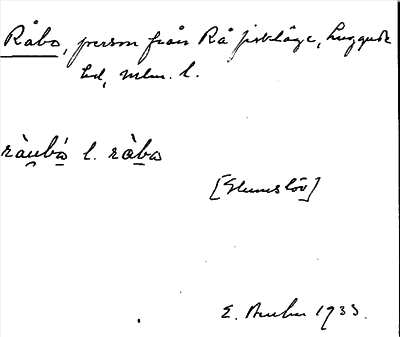 Råbo, person från Rå fiskläge, Luggude
hd, Mlm. l.
ràu̯bo̱ l. ràbo̱
[Glumslöv]
E. 1933.